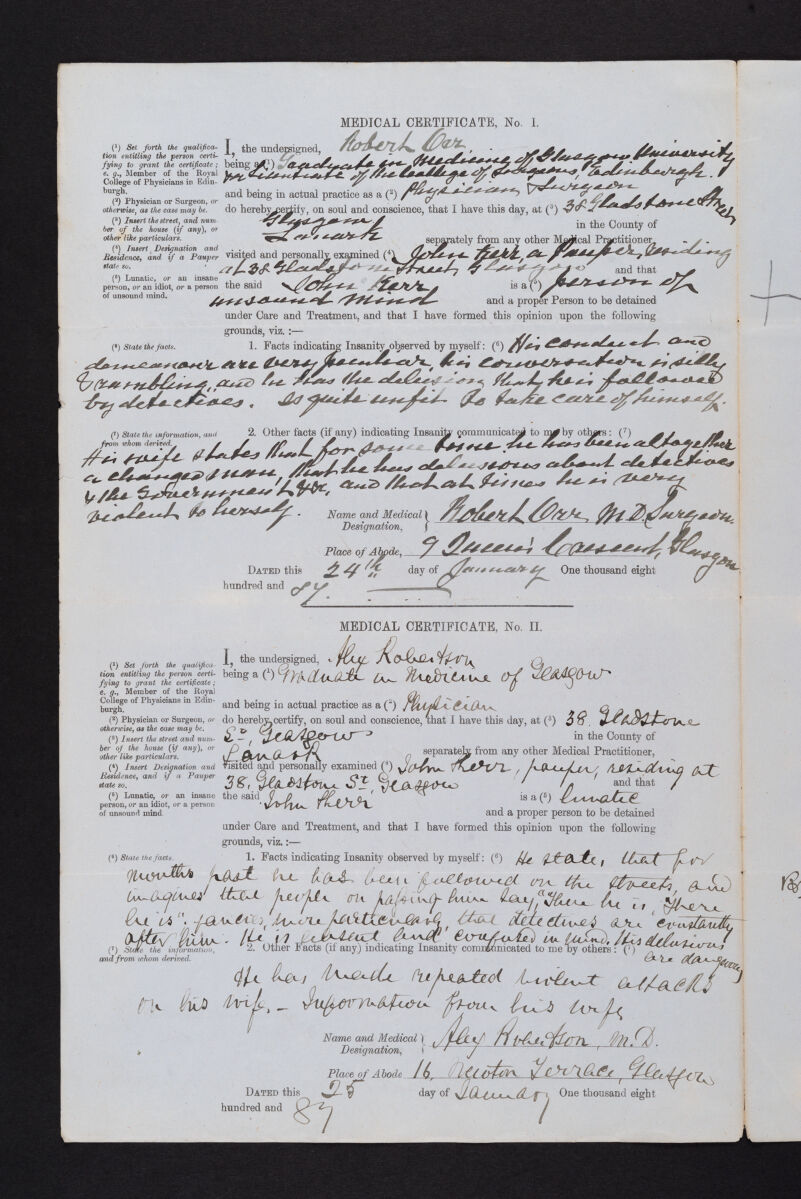 MEDICAL CERTIFICATE, No. I.
(1) Set forth the qualifica-
tion entitling the person certi-
fying to grant the certificate;
e. g., Member of the Royal
College of Physicians in Edin-
burgh.
(2) Physician or Surgeon, or
otherwise, as the case may be.
(3) Insert the street, and num-
ber of the house (if any), or
other like particulars.
(4) Insert Designation and
Residence, and if a Pauper
state so.
(5) Lunatic, or an insane
person, or an idiot, or a person
of unsound mind.
I, the undersigned, Robert Orr
being a (1) Graduate in Medicine of Glasgow University
& Licentiate of the College of Surgeons, Edinburgh.
and being in actual practice as a (2) Physician & Surgeon
do hereby certify, on soul and conscience, that I have this day, at (3) 38 Gladstone Street
Glasgow in the County of
Lanark separately from any other Medical Practitioner,
visited and personally examined (4) John Kerr a Pauper, residing
at 38 Gladstone Street, Glasgow and that
the said John Kerr is a (5) person of
unsound mind and a proper Person to be detained
under Care and Treatment, and that I have formed this opinion upon the following
grounds, viz. :—
(6) State the facts.
1. Facts indicating Insanity observed by myself: (6) His conduct and
demeanour are very peculiar, his conversation is silly
& rambling, and he has the delusion that he is followed
by detectives. Is quite unfit to take care of himself.
(7) State the information, and
from whom derived.
2. Other facts (if any) indicating Insanity communicated to me by others: (7)
His wife states that for some time he has been altogether
a changed man, that he has delusions about detectives
& the Government &c, and that at times he is very
violent to herself.
Name and Medical
Designation,
Robert Orr M.D. Surgeon.
Place of Abode, 9 Queen's Crescent, Glasgow
DATED this 24th day of January One thousand eight
hundred and 87.
MEDICAL CERTIFICATE, No. II.
(1) Set forth the qualifica-
tion entitling the person certi-
fying to grant the certificate;
e. g., Member of the Royal
College of Physicians in Edin-
burgh.
(2) Physician or Surgeon, or
otherwise, as the case may be.
(3) Insert the street and num-
ber of the house (if any), or
other like particulars.
(4) Insert Designation and
Residence, and if a Pauper
state so.
(5) Lunatic, or an insane
person, or an idiot, or a person
of unsound mind
I, the undersigned, Alex Robertson
being a (1) Graduate in Medicine of Glasgow
and being in actual practice as a (2) Physician
do hereby certify, on soul and conscience, that I have this day, at (3) 38. Gladstone
St, Glasgow in the County of
Lanark separately from any other Medical Practitioner,
visited and personally examined (4) John Kerr, pauper, residing at
38. Gladstone St, Glasgow and that
the said John Kerr is a (5) lunatic
and a proper person to be detained
under Care and Treatment, and that I have formed this opinion upon the following
grounds, viz. :—
(6) State the facts.
1. Facts indicating Insanity observed by myself: (6) He states that for
months past he has been followed on the streets, and
imagines that people on passing him say, "There he is, There
he is". fancies, more particularly that detectives are constantly
after him. He is and confused in mind. His delusions
are dangerous
(7) State the information,
and from whom derived.
2. Other Facts (if any) indicating Insanity communicated to me by others: (7)
He has made repeated violent attacks
on his wife. – Information from his wife
Name and Medical
Designation,
Alex Robertson, M.D.
Place of Abode 16, Newton Terrace, Glasgow
DATED this 25 day of January One thousand eight
hundred and 87